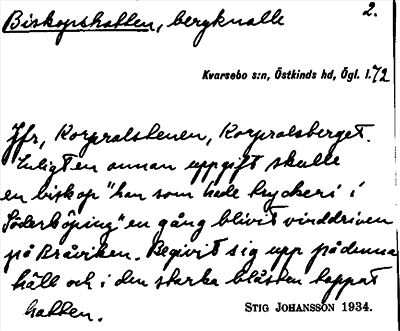 Biskopshatten, bergknalle 2.
Kvarsebo s:n, Östkinds hd, Ögl. l. 72
Jfr, Korpralstenen, Korpralsberget.
Enligt en annan uppgift skulle
en biskop "han som hade tryckeri i
Söderköping" en gång blivit vinddriven
på Bråviken. Begivit sig upp på denna
häll och i den starka blåsten tappat
hatten.
STIG JOHANSSON 1934.